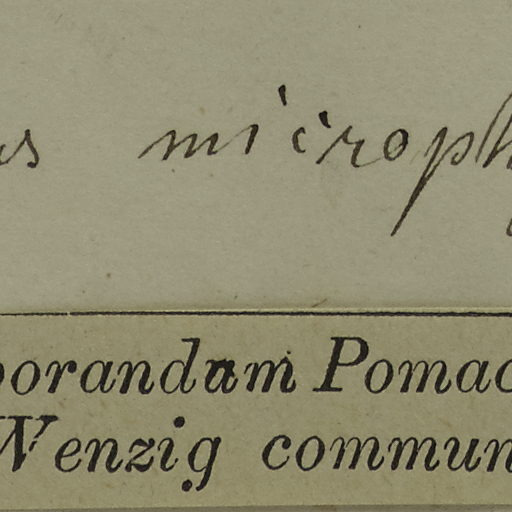 us microph
borandum Pomac
Wenzig commun